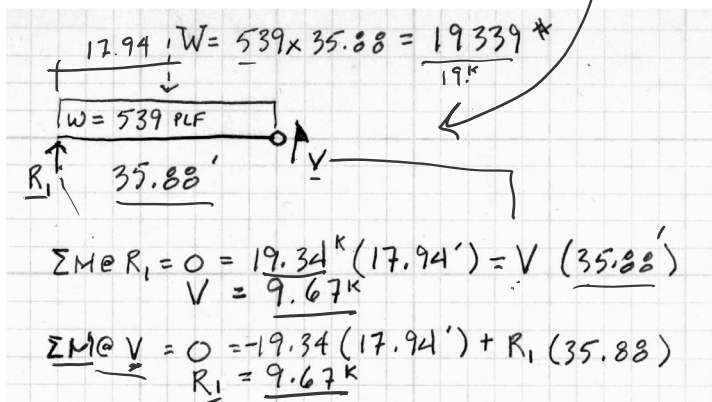 17.94 W = 539 x 35.88 = 19339 #
19.K
W = 539 PLF
R1 35.88' V
ΣM@ R1 = 0 = 19.34K (17.94') = V (35.88')
V = 9.67K
ΣM@ V = 0 = -19.34 (17.94') + R1 (35.88)
R1 = 9.67K